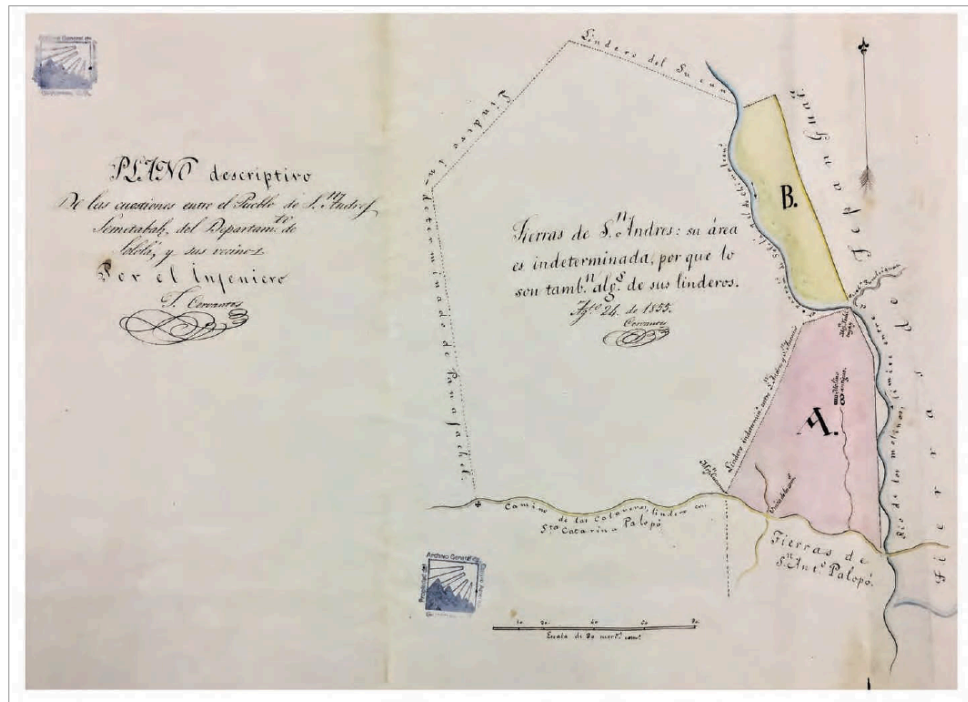 PLANO descriptivo
De las cuestiones entre el Pueblo de S.n Andres
Semetabah, del Departam.to de
Sololá, y sus vecinos
Por el Injeniero
J. Cervantes
Lindero del Sucun
Lindero indeterminado de Panajachel.
Tierras de S.n Andres: su área
es indeterminada, por que lo
son tamb.n alg.s de sus linderos.
Ag.to 24. de 1855.
Cervantes
B.
A.
Tierras de Tepanguat
Rio de los molinos, limites entre
Lindero indeterminado entre S.n Andres y S.n Antonio
Mojon
Camino de las Cataranas, lindero con
Sta Catarina Palopó
Tierras de
S.n Ant.o Palopó.
Escala de 80
Archivo General de